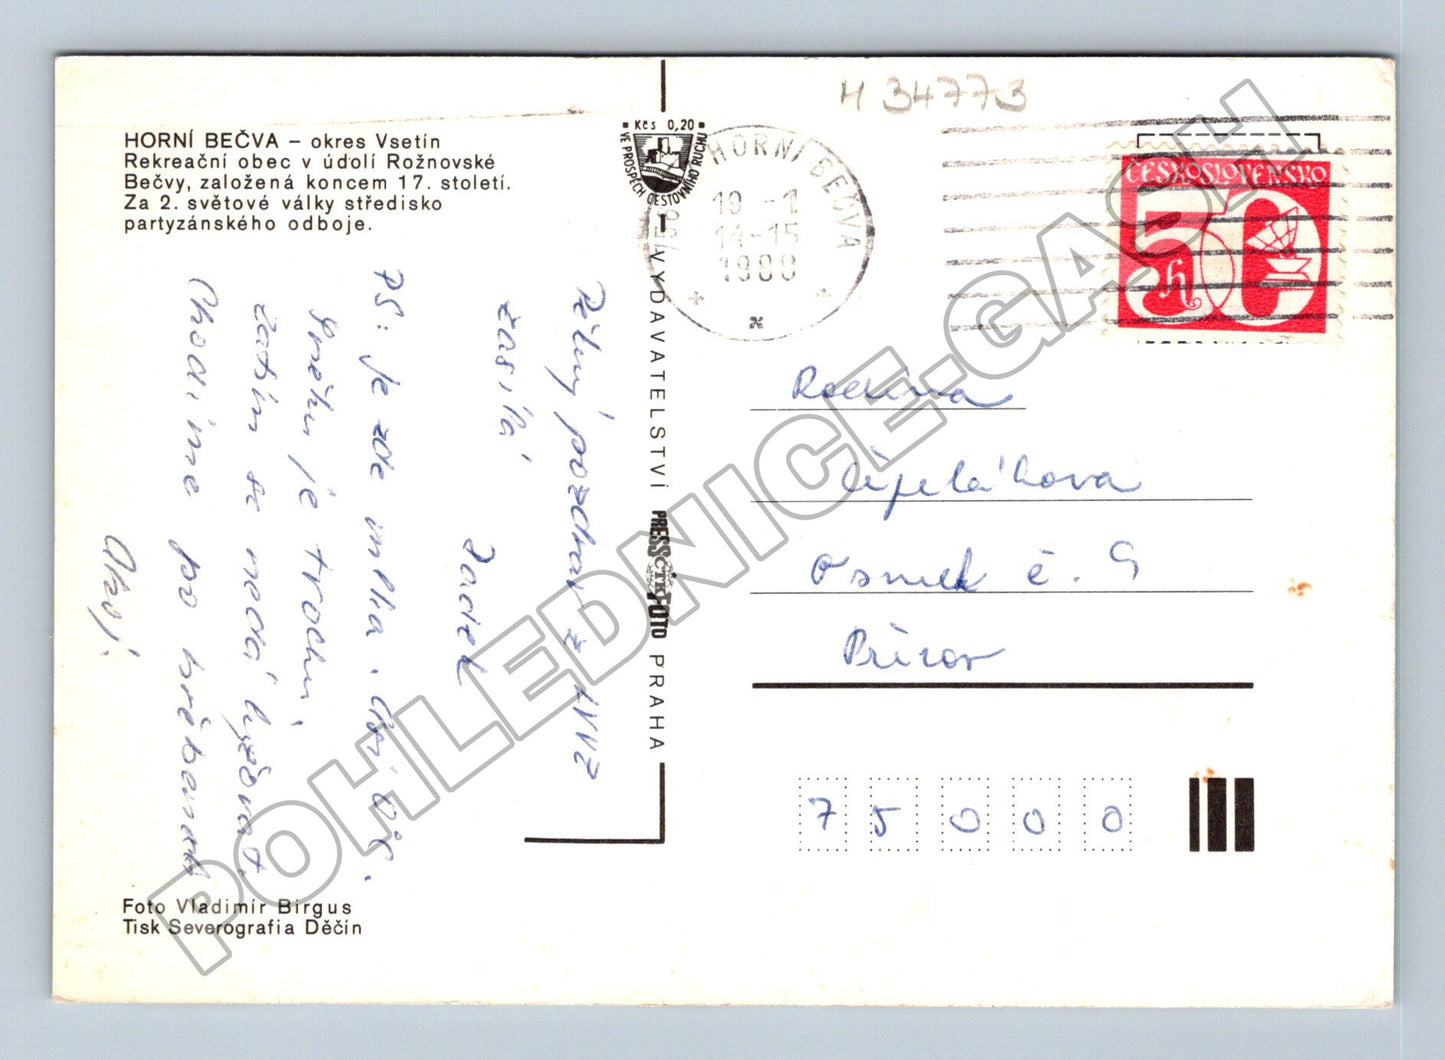 HORNÍ BEČVA – okres Vsetín
Rekreační obec v údolí Rožnovské
Bečvy, založená koncem 17. století.
Za 2. světové války středisko
partyzánského odboje.
Kčs 0,20
VE PROSPĚCH CESTOVNÍHO RUCHU
VYDAVATELSTVÍ
PRESSFOTO
ČTK
PRAHA
M 34773
HORNÍ BEČVA
19 -1
14-15
1988
ČESKOSLOVENSKO
50
h
Pěkný pozdrav z
zasílá
Zadek
PS: je zde mlha. 0°C.
Sněhu je trochu,
zatím se nedá lyžovat.
Chodíme po
Ahoj.
Rodina
Osmek č. 9
Přerov
75000
Foto Vladimír Birgus
Tisk Severografia Děčín
POHLEDNICE.GASH